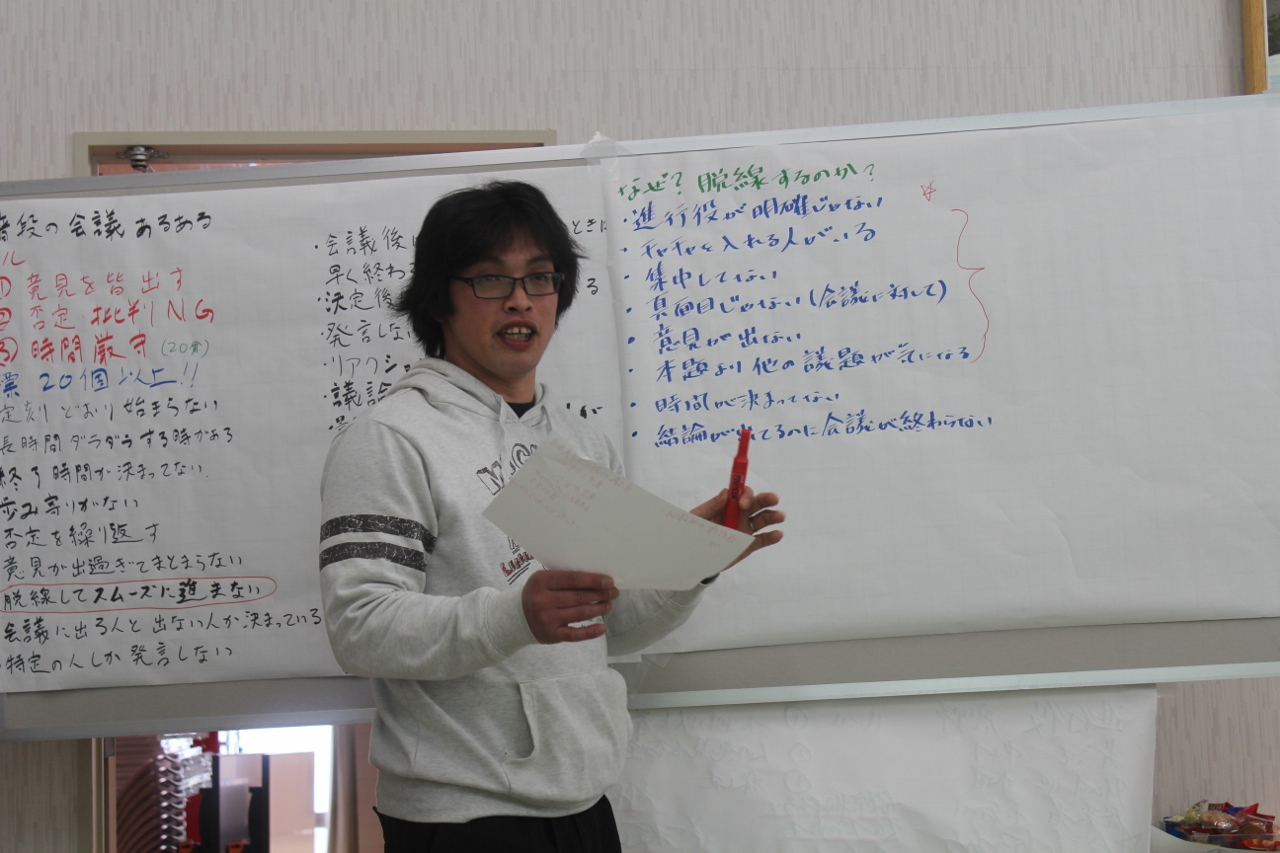 普段の会議あるある
ル
① 意見を皆出す
② 否定 批判NG
③ 時間厳守(20分)
案 20個以上!!
定刻どおり始まらない
長時間ダラダラする時がある
終了時間が決まってない
歩み寄りがない
否定を繰り返す
意見が出過ぎてまとまらない
脱線してスムーズに進まない
会議に出る人と出ない人が決まっている
・特定の人しか発言しない
・会議後
ときに
早く終わ
る
・決定後
・発言しな
・リアクショ
・議論
が
なぜ?脱線するのか?
・進行役が明確じゃない
・チャチャを入れる人がいる
・集中してない
・真面目じゃない(会議に対して)
・意見が出ない
・本題より他の議題が気になる
・時間が決まってない
・結論が出てるのに会議が終わらない